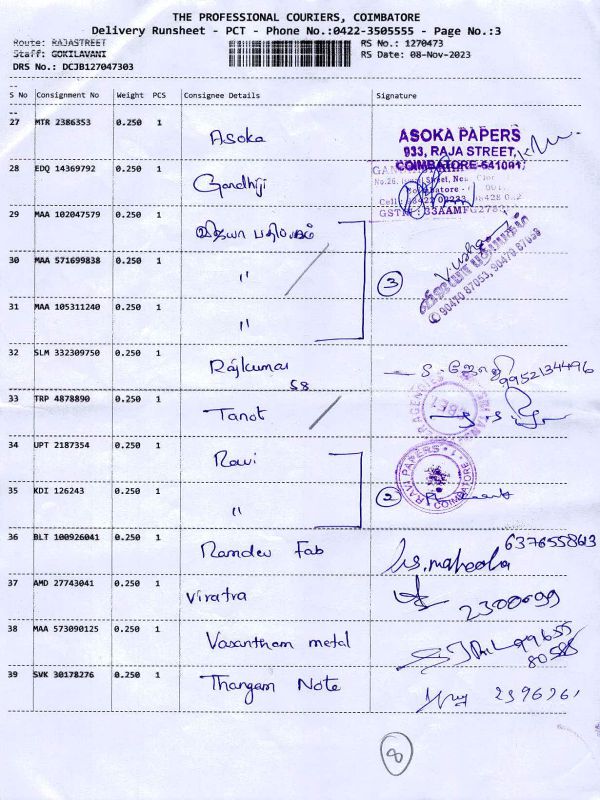 THE PROFESSIONAL COURIERS, COIMBATORE
Delivery Runsheet - PCT - Phone No.:0422-3505555 - Page No.:3
Route: RAJASTREET
RS No.: 1270473
Staff: GOKILAVANI
RS Date: 08-Nov-2023
DRS No.: DCJB127047303
S No Consignment No Weight PCS Consignee Details Signature
27 MTR 2386353 0.250 1 Asoka
ASOKA PAPERS
933, RAJA STREET,
COIMBATORE-641001
28 EDQ 14369792 0.250 1 Gandhiji
29 MAA 102047579 0.250 1
30 MAA 571699838 0.250 1 "
3
31 MAA 105311240 0.250 1 "
90470 87053, 90470 87098
32 SLM 332309750 0.250 1 Rajkumar
58
9952134496
33 TRP 4878890 0.250 1 Tanot
34 UPT 2187354 0.250 1 Ravi
RAVI PAPERS
COIMBATORE
35 KDI 126243 0.250 1 "
2
36 BLT 100926041 0.250 1 Ramdev Fab
6376558613
37 AMD 27743041 0.250 1 Viratra
2300099
38 MAA 573090125 0.250 1 Vasantham metal
99655
80585
39 SVK 30178276 0.250 1 Thangam Note
2396261
8